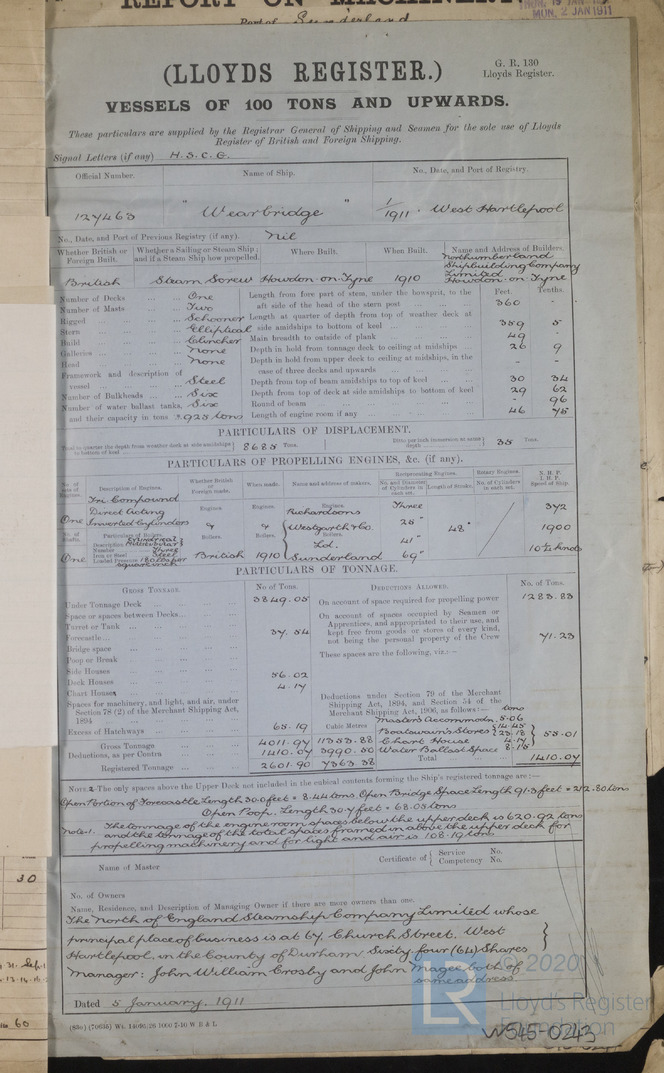 REPORT ON MACHINERY
MON. 2 JAN 1911
Port of Sunderland
(LLOYDS REGISTER.)
G. R. 130
Lloyds Register.
VESSELS OF 100 TONS AND UPWARDS.
These particulars are supplied by the Registrar General of Shipping and Seamen for the sole use of Lloyds
Register of British and Foreign Shipping.
Signal Letters (if any) H.S.C.G.
Official Number. Name of Ship. No., Date, and Port of Registry.
127463 " Wearbridge " 1/1911. West Hartlepool
No., Date, and Port of Previous Registry (if any). Nil
Whether British or Foreign Built. Whether a Sailing or Steam Ship; and if a Steam Ship how propelled. Where Built. When Built. Name and Address of Builders.
British Steam Screw Howdon-on-Tyne 1910 Northumberland Shipbuilding Company Limited Howdon-on-Tyne
Feet. Tenths.
Number of Decks One
Number of Masts Two
Rigged Schooner
Stern Elliptical
Build Clincher
Galleries None
Head None
Framework and description of vessel Steel
Number of Bulkheads Six
Number of water ballast tanks, Six
and their capacity in tons 925 tons
Length from fore part of stem, under the bowsprit, to the
aft side of the head of the stern post 360 -
Length at quarter of depth from top of weather deck at
side amidships to bottom of keel 359 5
Main breadth to outside of plank 49 -
Depth in hold from tonnage deck to ceiling at midships 26 9
Depth in hold from upper deck to ceiling at midships, in the
case of three decks and upwards - -
Depth from top of beam amidships to top of keel 30 34
Depth from top of deck at side amidships to bottom of keel 29 62
Round of beam - 96
Length of engine room if any 46 75
PARTICULARS OF DISPLACEMENT.
Total to quarter the depth from weather deck at side amidships to bottom of keel 8685 Tons. Ditto per inch immersion at same depth 35 Tons.
PARTICULARS OF PROPELLING ENGINES, &c. (if any).
No. of sets of Engines. Description of Engines. Whether British or Foreign made. When made. Name and address of makers. Reciprocating Engines. No. and Diameter of Cylinders in each set. Length of Stroke. Rotary Engines. No. of Cylinders in each set. N. H. P. I. H. P. Speed of Ship.
One Tri Compound Direct Acting Inverted Cylinders
Engines. Engines. Engines.
Richardsons Westgarth & Co. Ld. Sunderland
Three 25" 41" 69" 48"
372
1900
10½ knots
Particulars of Boilers.
Description
Number Three
Iron or Steel Steel
Loaded Pressure 180 lbs per square inch
Boilers. Boilers. Boilers.
One British 1910
PARTICULARS OF TONNAGE.
GROSS TONNAGE. No of Tons.
Under Tonnage Deck 3849.05
Space or spaces between Decks
Turret or Trunk
Forecastle 37.54
Bridge space
Poop or Break
Side Houses
Deck Houses 56.02
Chart Houses 4.17
Spaces for machinery, and light, and air, under
Section 78 (2) of the Merchant Shipping Act,
1894
Excess of Hatchways 65.19
Cubic Metres
Gross Tonnage 4011.97 11353.88
Deductions, as per Contra 1410.07 3990.50
Registered Tonnage 2601.90 7363.38
DEDUCTIONS ALLOWED. No. of Tons.
On account of space required for propelling power 1283.83
On account of spaces occupied by Seamen or
Apprentices, and appropriated to their use, and
kept free from goods or stores of every kind,
not being the personal property of the Crew 71.23
These spaces are the following, viz:—
Deductions under Section 79 of the Merchant
Shipping Act, 1894, and Section 54 of the
Merchant Shipping Act, 1906, as follows:— tons
Master's Accommodn. 5.06
14.45
Boatswain's Stores 23.18
Chart House 4.17
Water Ballast Space 8.15
55.01
Total 1410.07
NOTE.2 The only spaces above the Upper Deck not included in the cubical contents forming the Ship's registered tonnage are:—
Open Portion of Forecastle Length 30.0 feet = 8.44 tons Open Bridge Space Length 91.3 feet = 212.80 tons
Open Poop. Length 30.7 feet = 68.05 tons
Note 1. The tonnage of the engine room spaces below the upper deck is 620.92 tons
and the tonnage of the total spaces framed in above the upper deck for
propelling machinery and for light and air is 108.19 tons
Name of Master Certificate of Service No. Competency No.
No. of Owners
Name, Residence, and Description of Managing Owner if there are more owners than one.
The North of England Steamship Company Limited whose
principal place of business is at 67, Church Street, West
Hartlepool, in the County of Durham Sixty four (64) Shares
Manager: John William Crosby and John Magee both of
same address
Dated 5 January. 1911
(83a) (70635) Wt. 14095/26 1000 7-10 W B & L
30
60
LR
© 2020
Lloyd's Register
Foundation
W545-0243